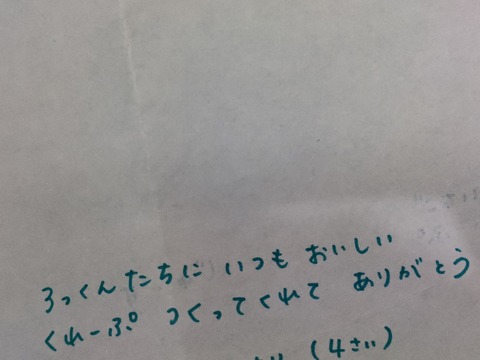 ろっくんたちに いつも おいしい
くれーぷ つくってくれて ありがとう
(4さい)